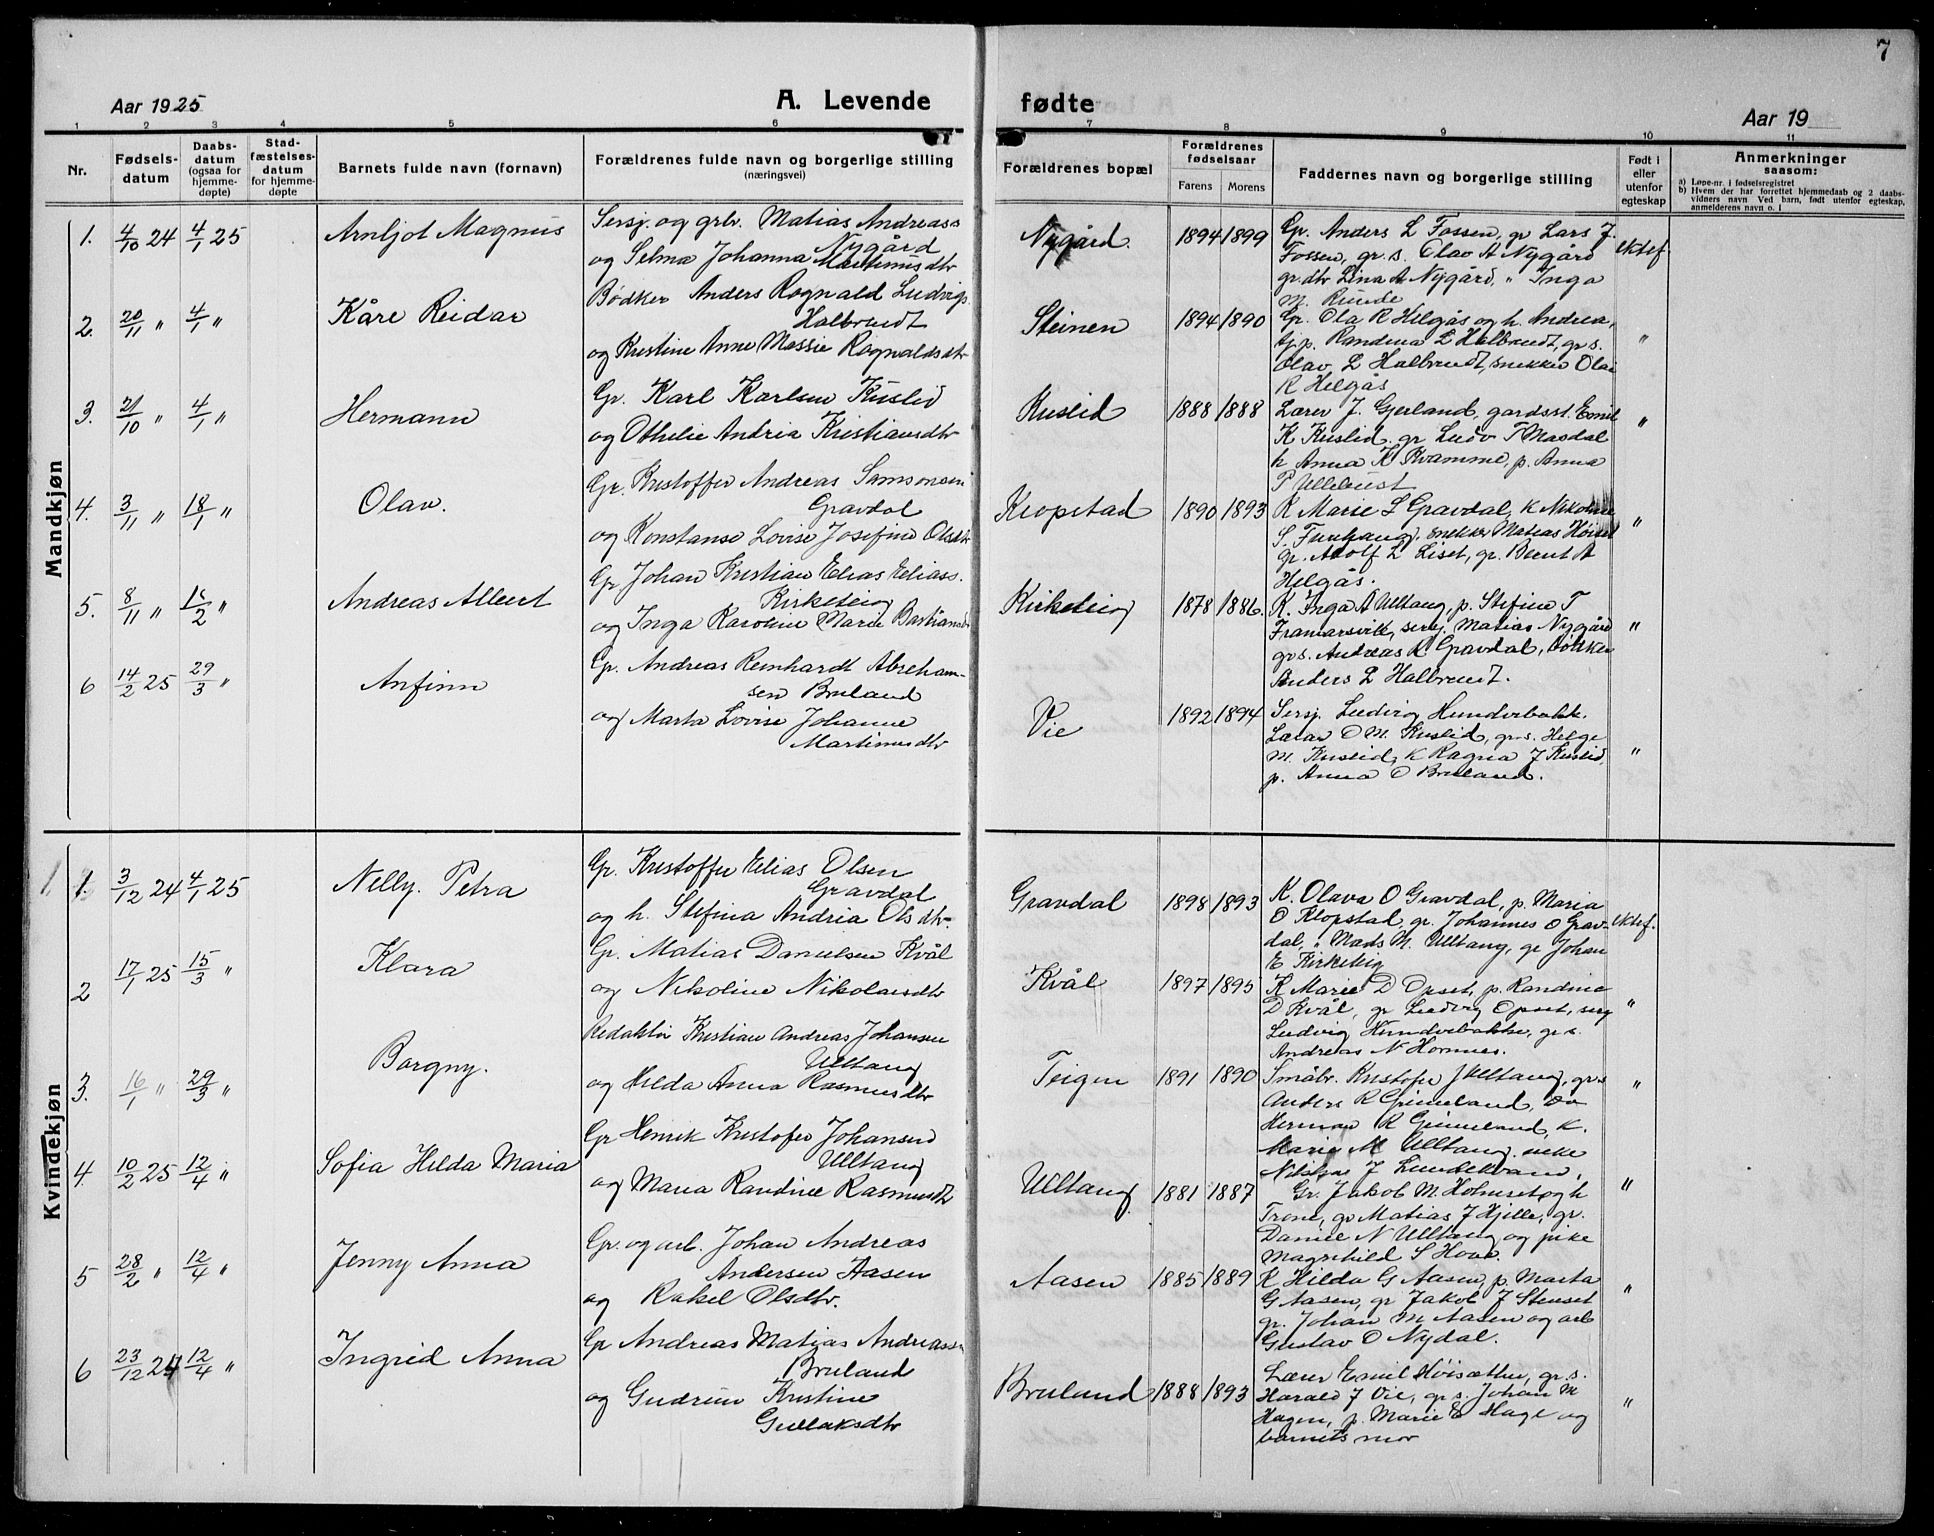 7
Aar 1925
A. Levende
fødte
Aar 19
1 2 3 4 5 6 7 8 9 10 11
Nr.
Fødsels-
datum
Daabs-
datum
(ogsaa for
hjemme-
døpte)
Stad-
fæstelses-
datum
for hjemme-
døpte
Barnets fulde navn (fornavn)
Forældrenes fulde navn og borgerlige stilling
(næringsvei)
Forældrenes bopæl
Forældrenes
fødselsaar
Farens Morens
Faddernes navn og borgerlige stilling
Født i
eller
utenfor
egteskap
Anmerkninger
saasom:
a) Løpe-nr. i fødselsregistret
b) Hvem der har forrettet hjemmedaab og 2 daabs-
vidners navn Ved barn, født utenfor egteskap,
anmelderens navn o. l
Mandkjøn
1. 4/10 24 4/1 25 Arnljot Magnus
Sersj. og grbr. Matias Andreass
Nygård
og Selma Johanna Martinusdtr
Nygård. 1894 1899
Gr. Anders L Fossen, gr Lars J.
Fossen, gr. s. Olav A Nygård
gr. dtr Lina A Nygård, " Inga
M. Runde
ektef.
2. 20/11 " 4/1 " Kåre Reidar
Bødker Anders Rognald Ludvigs.
Halbrendt
og Kristine Anne Massie Rognaldsdtr
Steinen 1894 1890
Gr. Ola R Helgås og h. Andrea,
tj. p. Randina L Halbrendt, gr s.
Olav L Halbrendt, snekker Olai
R Helgås
"
3. 21/10 " 4/1 " Hermann
Gr. Karl Karlsen Kuslid
og Othelie Andria Kristiansdtr
Kuslid 1888 1888
Lærer J. Gjerland, gardsst. Emil
K Kuslid, gr Ludv T Masdal
h Anna K Kvamme, p. Anna
P Ullebust
"
4. 3/11 " 18/1 " Olav.
Gr. Kristoffer Andreas Samsonsen
Gravdal
og Konstanse Lovise Josefine Olsdtr
Klopstad 1890 1893
K Marie L Gravdal, K Nikoline
S. Furehaug, snekker Matias
gr. Adolf L Liset, gr. Bernt A
Helgås.
"
5. 8/11 " 15/2 " Andreas Albert
Gr Johan Kristian Elias Eliass.
Kirketeig
og Inga Karoline Marie Bastiansdtr
Kirketeig 1878 1886.
K. Inga A Ulltang, p. Stefine T
Framarsvik, sersj. Matias Nygård
gr s. Andreas K Gravdal, bøkker
Anders L Halbrendt.
"
6 14/2 25 29/3 " Anfinn
Gr. Andreas Reinhardt Abreham-
sen Bruland
og Marta Lovise Johanne
Martinusdtr
Vie 1892 1894
Sersj. Ludvig Hundvebakk.
Lærer O M. Kuslid, gr. s. Helge
M. Kuslid, K Ragna J Kuslid,
p. Anna O Bruland.
"
Kvindekjøn
1 1. 3/12 24 4/1 25 Nelly. Petra
Gr. Kristoffer Elias Olsen
Gravdal
og h. Stefina Andria Olsdtr.
Gravdal 1898 1893
K. Olava O Gravdal, p. Maria
O Klopstad, gr. Johannes O Grav-
dal, " Mads M. Ulltang, gr Johan
E Kirketeig
ektef.
2 17/1 25 15/3 " Klara
Gr. Matias Danielsen Kvål
og Nikoline Nikolaisdtr
Kvål 1897 1895
K Marie D Opset, p. Randine
D Kvål, gr Ludvig Opset, sersj
Ludvig Hundvebakke, gr. s.
Andreas N Hornnes.
"
3. 16/1 " 29/3 " Borgny.
Redaktør Kristian Andreas Johansen
Ulltang
og Hilda Anna Rasmusdtr
Teigen 1891 1890
Småbr. Kristofer J Ulltang, gr. s
Anders R Grimeland, do
Herman R Grimeland, K.
Marie M Ulltang,
J Lundelvand,
"
4. 10/2 25 12/4 " Sofia Hilda Maria
Gr Henrik Kristofer Johansen
Ulltang
og Maria Randine Rasmusdtr
Ulltang. 1881 1887
Gr. Jakob M. Holmset og h
Trone, gr Matias J Hjelle, gr.
Daniel N Ulltang og pike
Magnhild S Hove
"
5 28/2 " 12/4 " Jenny Anna
Gr. og arb. Johan Andreas
Andersen Aasen
og Rakel Olsdtr.
Aasen 1885 1889
K Hilda G Aasen, p. Marta
G Aasen, gr Jakob J Stenset
gr. Johan M Aasen og arb
Gustav O Nydal.
"
6 23/12 24 12/4 " Ingrid Anna
Gr Andreas Matias Andreass-
Bruland
og Gudrun Kristine
Gullaksdtr
Bruland 1888 1893
Lærer Emil Høisæther, gr. s.
Harald J Vie, gr. s. Johan M
Hagen, p. Marie E Hage og
barnets mor
"